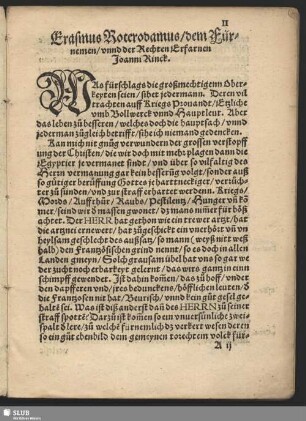 II
Erasmus Roterodamus/dem Für-
nemen/vnnd der Rechten Erfarnen
Joanni Rinck.
WAs fürschlags die großmechtigenn Ober-
keyten seien/ sihet jedermann. Deren vil
trachten auff Kriegs Prouandt/ Etzliche
vmb Bollwerck vnnd Hauptleut. Aber
das leben zů bessern/welches doch die hauptsach/vnnd
jederman zůgleich betrifft/sihe ich niemand gedencken.
Kan mich nit gnůg verwundern der grossen verstopff
ung der Christen/ die wir doch mit mehr plagen dann die
Egyptier je vermanet sindt/vnd über so vilfaltig des
Herrn vermanung gar kein besserūg volgt/sonder auß
so gůtiger berüffung Gottes je hartneckiger/verrůch-
ter zů sünden/vnd zur straff erhartet werdenn. Kriegs/
Mords/ Auffrhůr/ Raubs/ Pestilentz/ Hunger vñ kũ
mer/ sind wir d massen gwonet/ dz mans nimer für böß
achtet. Der HERR hat gethon wie ein trewer artzt/ hat
die artznei ernewert/ hat zůgeschickt ein vnerhört vñ vn
heylsam geschlecht des aussatz/ so mann (weyß nit weß
halb) den Frantzösischen grind nennt/ so es doch in allen
Landen gmeyn/ Solch grausam übel hat vns so gar we
der zucht noch erbarkeyt gelernt/ das wirs gantz in einn
schimpff gewendet. Ist dahin kom̃en/ das zů hoff/ vnder
den dapfferen vnd/ jres bedunckens/ höfflichen leuten/ d
die Frantzosen nit hat/ Beurisch/ vnnd kein gůt gesel ge-
halte sei. Was ist diß anderst dañ des HERRN zů seiner
straff spottē? Darzů ist kom̃en so ein vnuersünliche zwei-
spalt d lere/ zů welche fürnemlich dz vorkert wesen deren
so ein gůt ebenbild dem gemeynen torechtem volck für-
A ij
SLUB